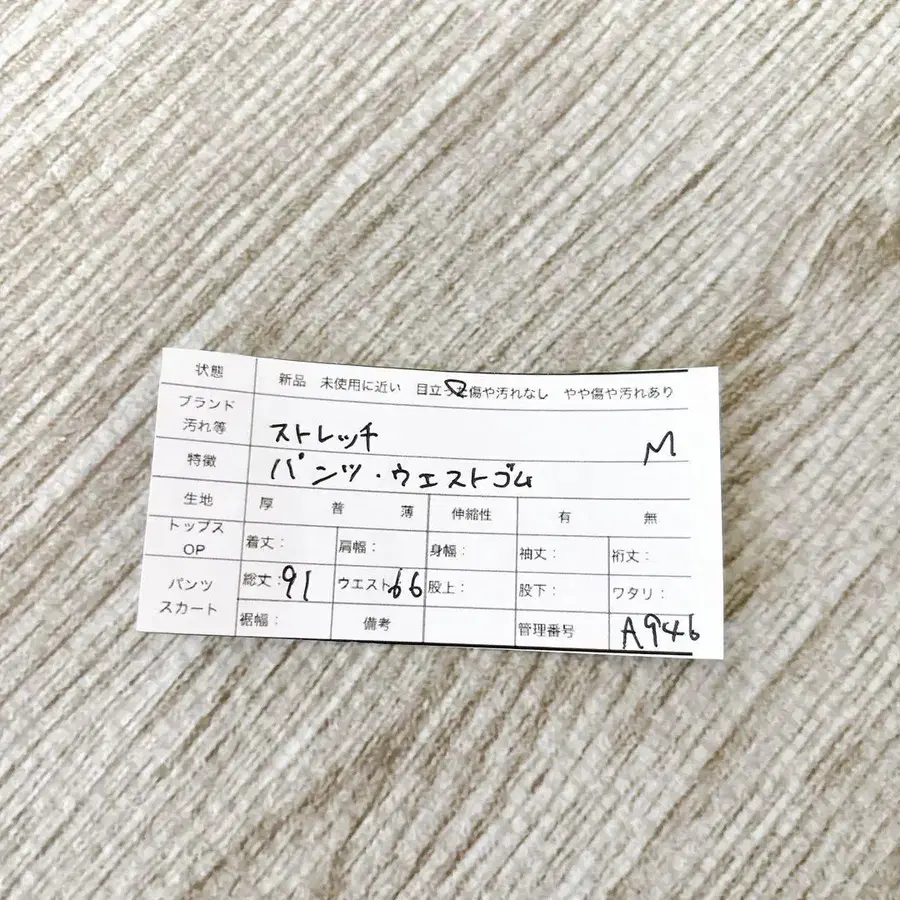 状態 新品 未使用に近い 目立った傷や汚れなし やや傷や汚れあり
ブランド
汚れ等 ストレッチ M
特徴 パンツ・ウエストゴム
生地 厚 普 薄 伸縮性 有 無
トップス
OP 着丈: 肩幅: 身幅: 袖丈: 裄丈:
パンツ
スカート 総丈:91 ウエスト:66 股上: 股下: ワタリ:
裾幅: 備考 管理番号 A946